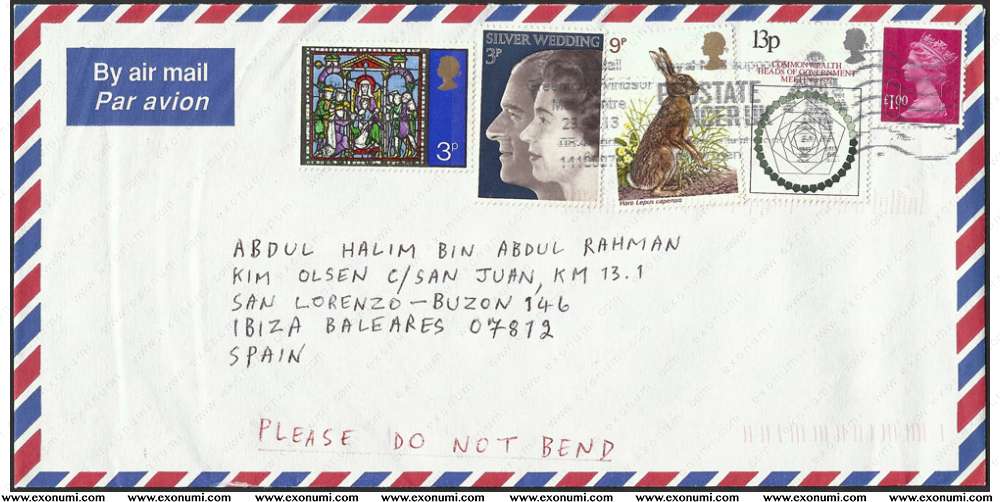 By air mail
Par avion
3P
SILVER WEDDING
3P
9P
Hare Lepus capensis
13p
COMMONWEALTH
HEADS OF GOVERNMENT
£1.90
PROSTATE
CANCER UK
ABDUL HALIM BIN ABDUL RAHMAN
KIM OLSEN C/SAN JUAN, KM 13.1
SAN LORENZO-BUZON 146
IBIZA BALEARES 07812
SPAIN
PLEASE DO NOT BEND
www.exonumi.com www.exonumi.com www.exonumi.com www.exonumi.com www.exonumi.com www.exonumi.com www.exonumi.com www.exonumi.com